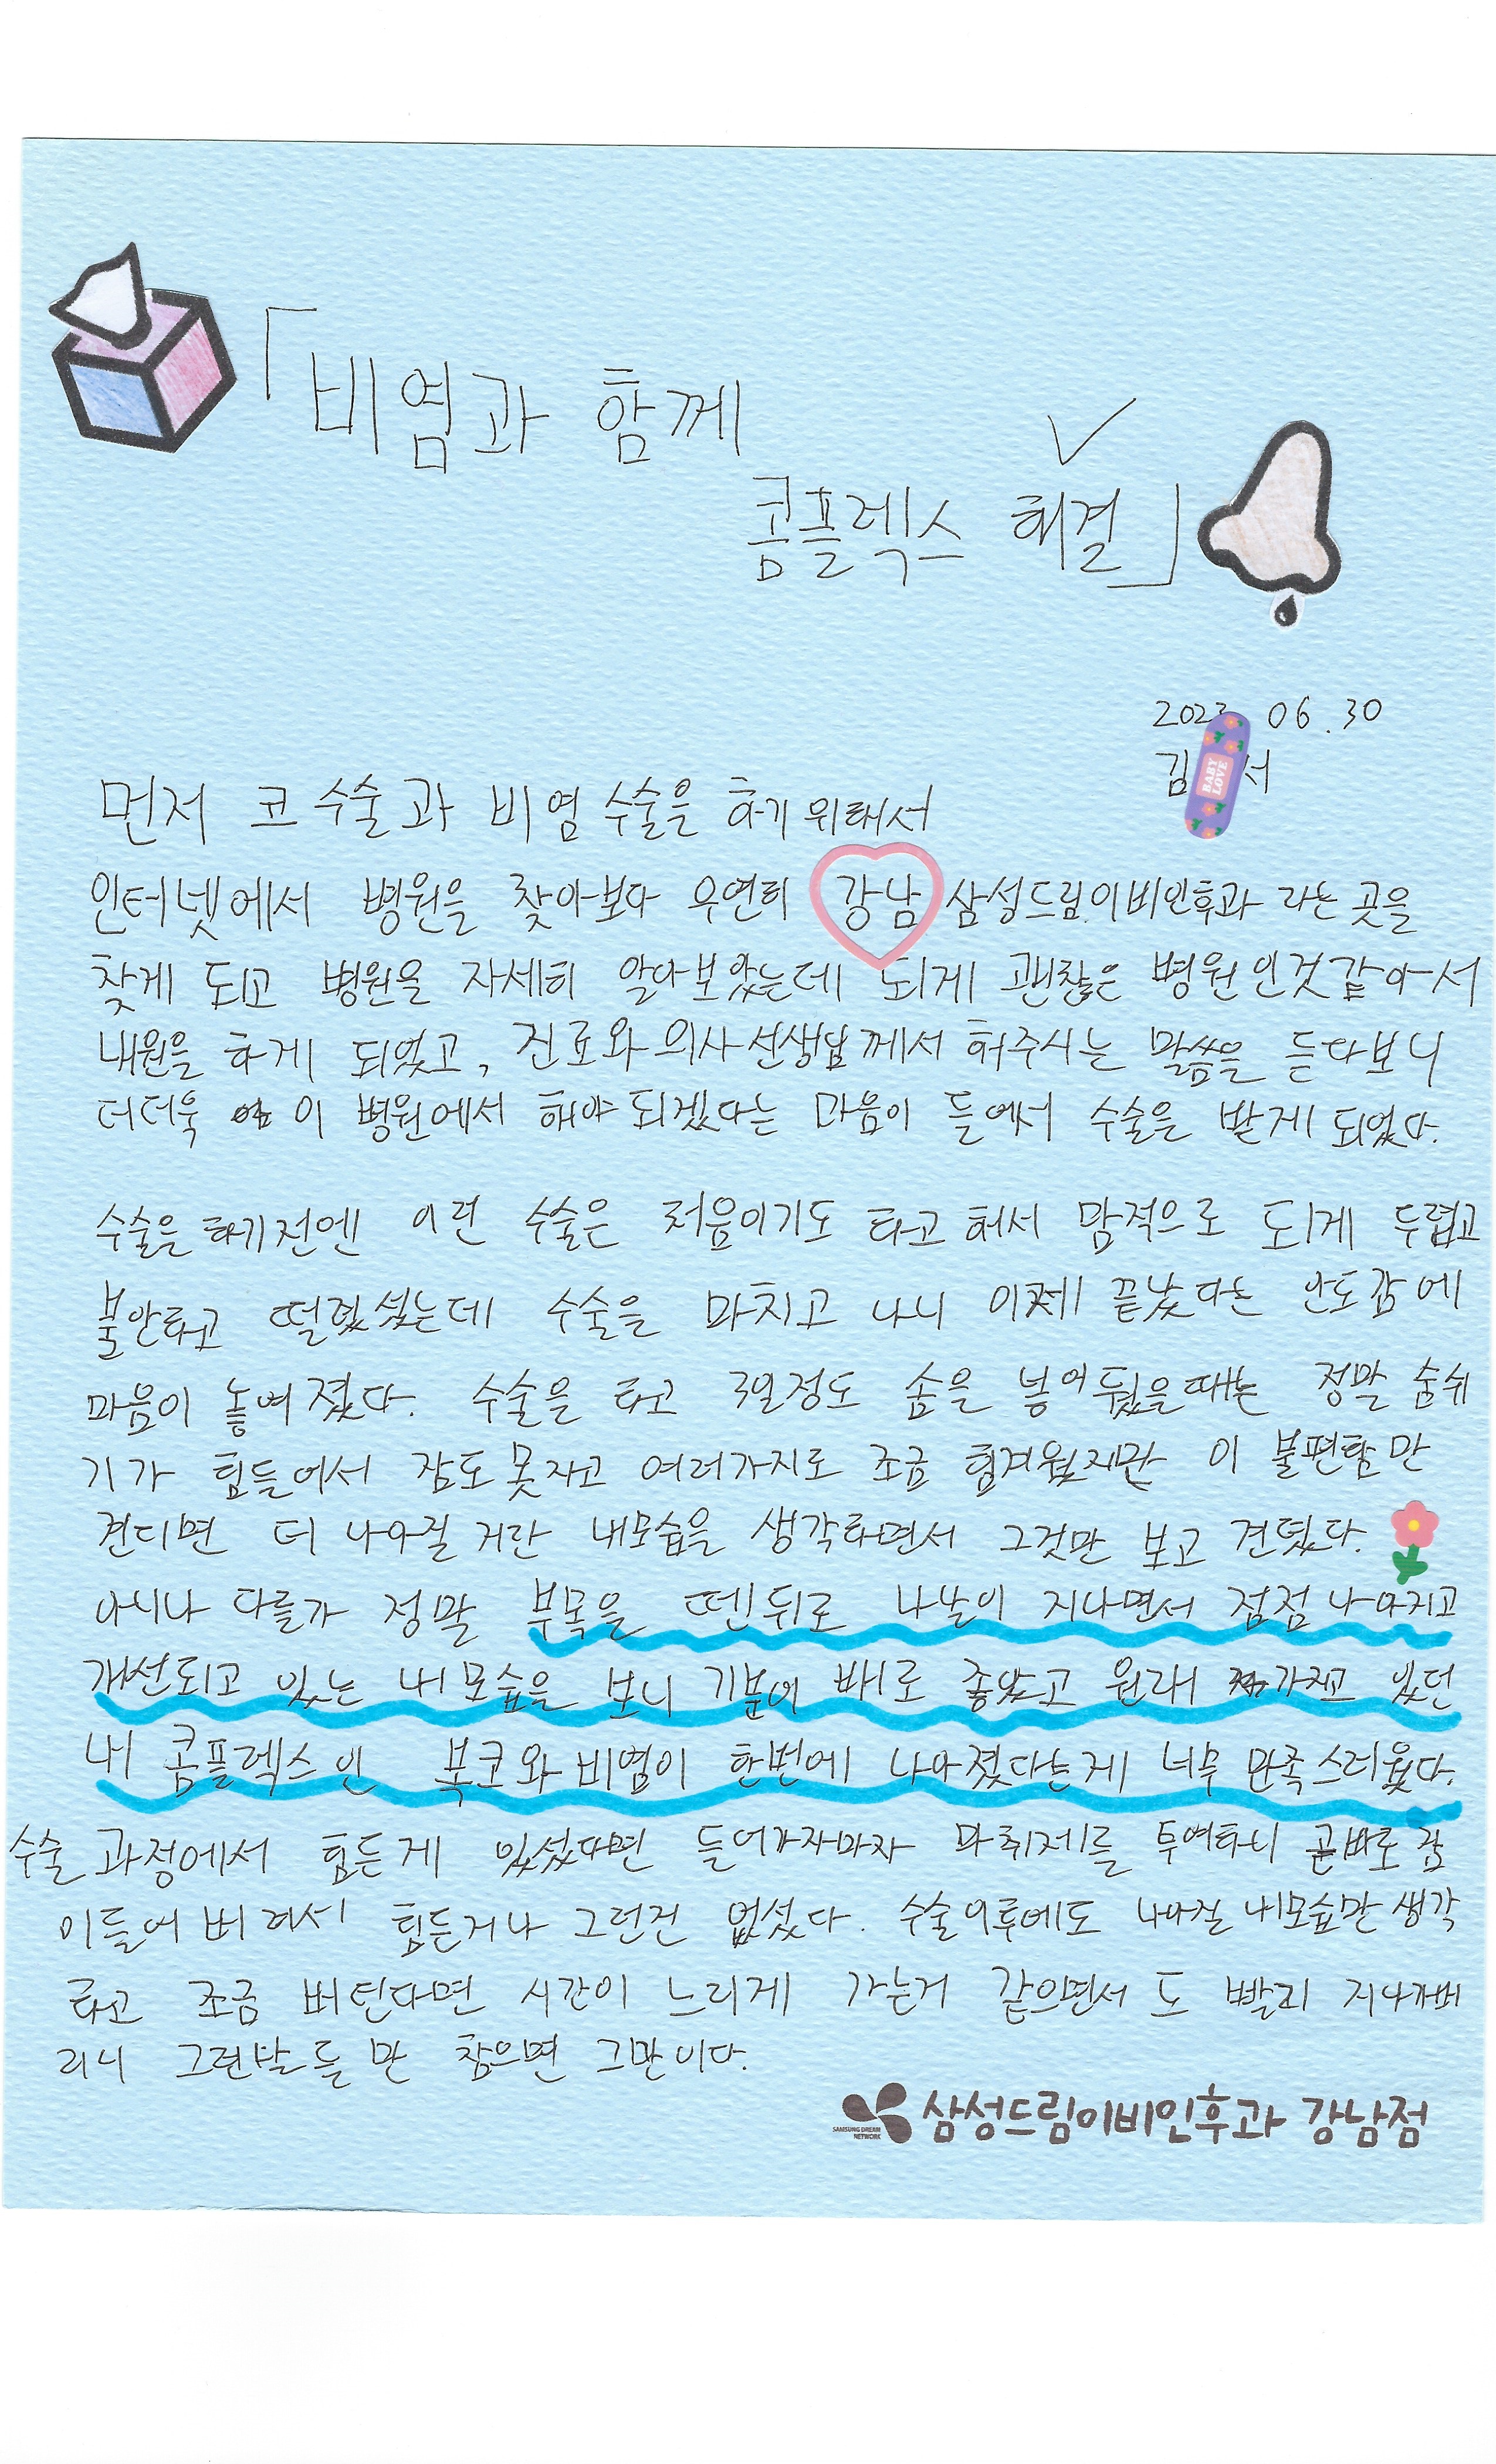 「비염과 함께
콤플렉스 해결」
2023 06.30
김 서
BABY LOVE
먼저 코 수술과 비염 수술을 하기 위해서
인터넷에서 병원을 찾아보다 우연히 강남 삼성드림이비인후과 라는 곳을
찾게 되고 병원을 자세히 알아보았는데 되게 괜찮은 병원인것같아서
내원을 하게 되었고, 진료와 의사선생님께서 해주시는 말씀을 듣다보니
더더욱 이 병원에서 해야되겠다는 마음이 들어서 수술을 받게 되었다.
수술을 하기전엔 이런 수술은 처음이기도 하고 해서 맘적으로 되게 두렵고
불안하고 떨렸셨는데 수술을 마치고 나니 이제 끝났다는 안도감에
마음이 놓여졌다. 수술을 하고 3일정도 솜을 넣어뒀을때는 정말 숨쉬
기가 힘들어서 잠도못자고 여러가지로 조금 힘겨웠지만 이 불편함만
견디면 더 나아질거란 내모습을 생각하면서 그것만 보고 견뎠다.
아니나 다를가 정말 부목을 뗀뒤로 나날이 지나면서 점점 나아지고
개선되고 있는 내모습을 보니 기분이 배로 좋았고 원래 가지고 있던
내 콤플렉스인 복코와 비염이 한번에 나아졌다는게 너무 만족스러웠다.
수술 과정에서 힘든게 있셨다면 들어가자마자 마취제를 투여하니 곧바로 잠
이들어버려서 힘든거나 그런건 없셨다. 수술이후에도 나아질 내모습만 생각
하고 조금 버틴다면 시간이 느리게 가는거 같으면서도 빨리 지나가버
리니 그런날들만 참으면 그만이다.
SAMSUNG DREAM NETWORK 삼성드림이비인후과 강남점